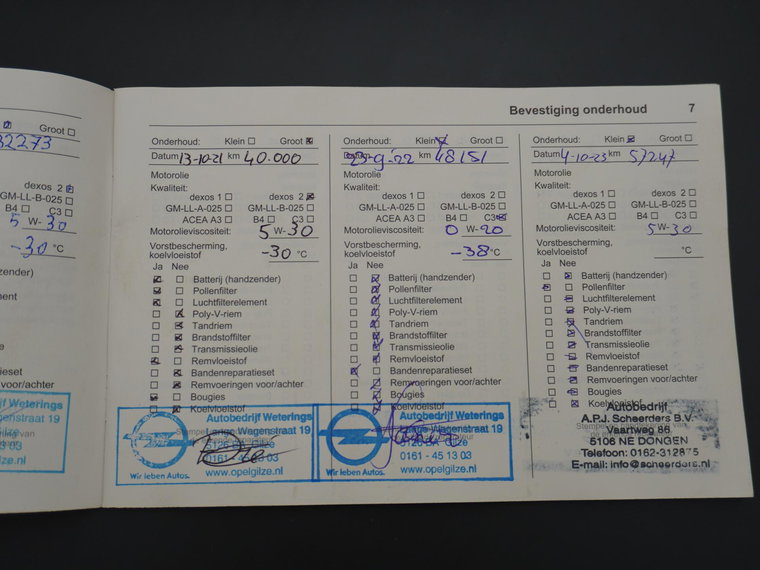 Bevestiging onderhoud 7
Groot
32273
dexos 2
GM-LL-B-025
C3
5 W-30
-30 °C
zender)
ement
ie
ieset
voor/achter
Onderhoud: Klein Groot
Datum 13-10-21 km 40.000
Motorolie
Kwaliteit:
dexos 1 dexos 2
GM-LL-A-025 GM-LL-B-025
ACEA A3 B4 C3
Motorolieviscositeit: 5 W-30
Vorstbescherming,
koelvloeistof -30 °C
Ja Nee
Batterij (handzender)
Pollenfilter
Luchtfilterelement
Poly-V-riem
Tandriem
Brandstoffilter
Transmissieolie
Remvloeistof
Bandenreparatieset
Remvoeringen voor/achter
Bougies
Koelvloeistof
Autobedrijf Weterings
Lange Wagenstraat 19
0161 - 45 13 03
www.opelgilze.nl
Wir leben Autos.
Onderhoud: Klein Groot
Datum 23-9-'22 km 48151
Motorolie
Kwaliteit:
dexos 1 dexos 2
GM-LL-A-025 GM-LL-B-025
ACEA A3 B4 C3
Motorolieviscositeit: 0 W-20
Vorstbescherming,
koelvloeistof -38 °C
Ja Nee
Batterij (handzender)
Pollenfilter
Luchtfilterelement
Poly-V-riem
Tandriem
Brandstoffilter
Transmissieolie
Remvloeistof
Bandenreparatieset
Remvoeringen voor/achter
Bougies
Koelvloeistof
Autobedrijf Weterings
Lange Wagenstraat 19
0161 - 45 13 03
www.opelgilze.nl
Wir leben Autos.
Onderhoud: Klein Groot
Datum 4-10-23 km 57247
Motorolie
Kwaliteit:
dexos 1 dexos 2
GM-LL-A-025 GM-LL-B-025
ACEA A3 B4 C3
Motorolieviscositeit: 5 W-30
Vorstbescherming,
koelvloeistof °C
Ja Nee
Batterij (handzender)
Pollenfilter
Luchtfilterelement
Poly-V-riem
Tandriem
Brandstoffilter
Transmissieolie
Remvloeistof
Bandenreparatieset
Remvoeringen voor/achter
Bougies
Koelvloeistof
Autobedrijf
A.P.J. Scheerders B.V.
Vaartweg 86
5106 NE DONGEN
Telefoon: 0162-312875
E-mail: info@scheerders.nl